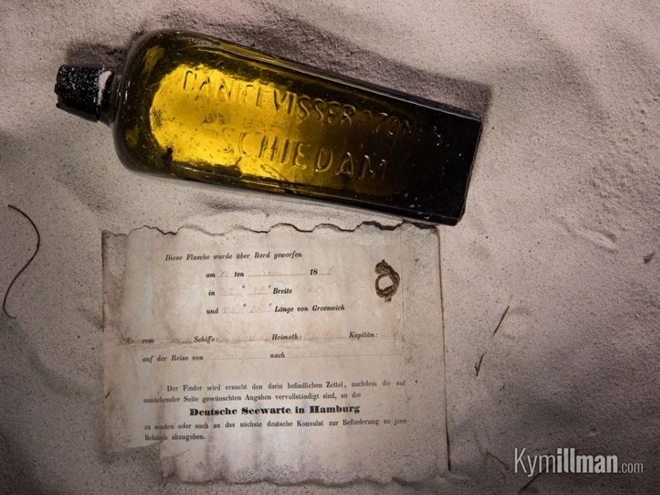 DANIEL VISSER & ZONEN
SCHIEDAM
Diese Flasche wurde über Bord geworfen
am ten 18
in ° ' Breite
und ° ' Länge von Greenwich
vom Schiffe: Heimath: Kapitän:
auf der Reise von nach
Der Finder wird ersucht den darin befindlichen Zettel, nachdem die auf
umstehender Seite gewünschten Angaben vervollständigt sind, an die
Deutsche Seewarte in Hamburg
zu senden oder auch an das nächste deutsche Konsulat zur Beförderung an jene
Behörde abzugeben.
Kymillman.com